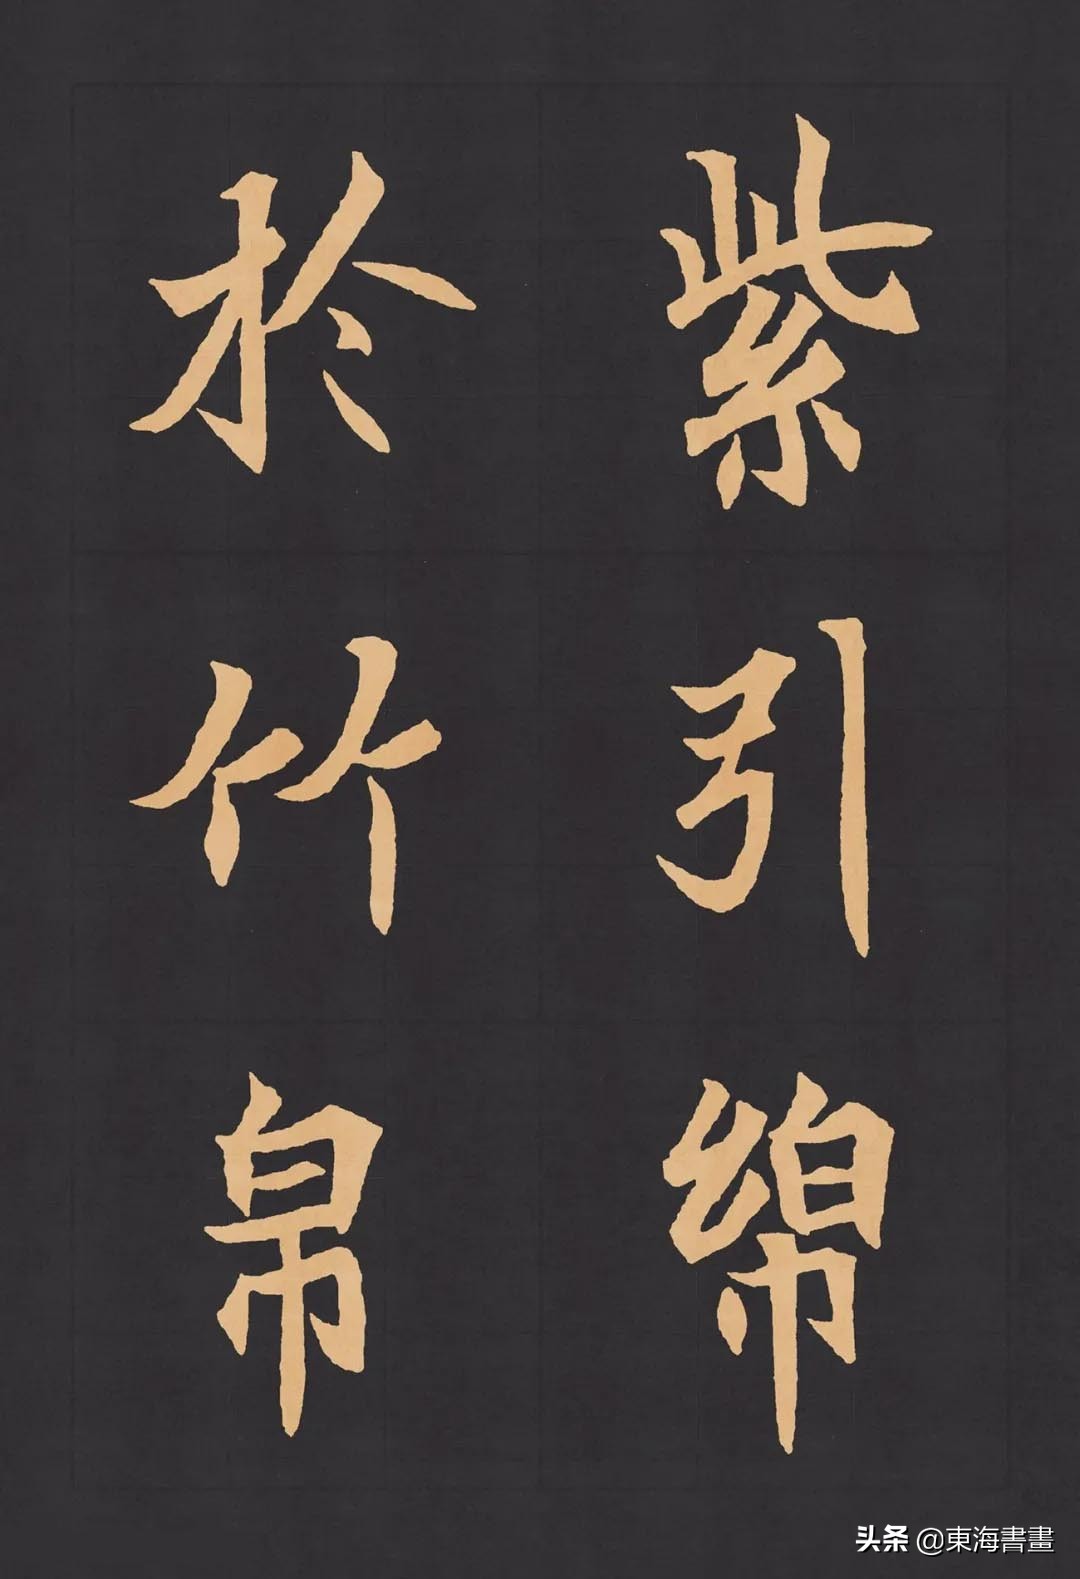 紫引綿
於竹帛
头条 @東海書畫